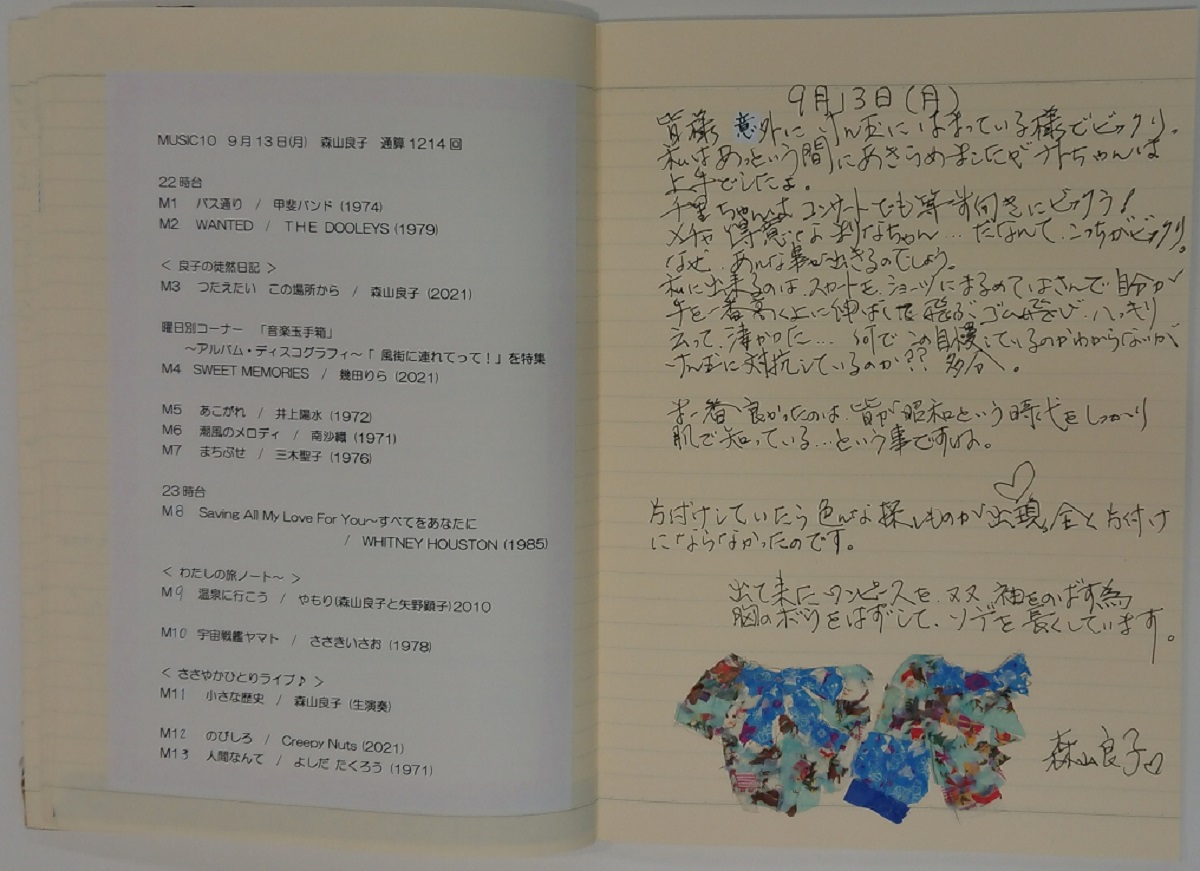 MUSIC10 9月13日(月) 森山良子 通算1214回
22時台
M1 バス通り / 甲斐バンド (1974)
M2 WANTED / THE DOOLEYS (1979)
< 良子の徒然日記 >
M3 つたえたい この場所から / 森山良子 (2021)
曜日別コーナー 「音楽玉手箱」
～アルバム・ディスコグラフィ～「 風街に連れてって！」を特集
M4 SWEET MEMORIES / 幾田りら (2021)
M5 あこがれ / 井上陽水 (1972)
M6 潮風のメロディ / 南沙織 (1971)
M7 まちぶせ / 三木聖子 (1976)
23時台
M8 Saving All My Love For You～すべてをあなたに
/ WHITNEY HOUSTON (1985)
< わたしの旅ノート～ >
M9 温泉に行こう / やもり(森山良子と矢野顕子)2010
M10 宇宙戦艦ヤマト / ささきいさお (1978)
< ささやかひとりライブ♪ >
M11 小さな歴史 / 森山良子 (生演奏)
M12 のびしろ / Creepy Nuts (2021)
M13 人間なんて / よしだ たくろう (1971)
9月13日(月)
皆様 意外に けん玉に はまっている様でビックリ。
私はあっという間にあきらめましたが ちゃんは
上手でしたよ。
千里ちゃんは コンサートでも 向きにビックリ！
メチャ 得意 ちゃん… だなんて、こっちがビックリ。
なぜ、あんな事が出きるのでしょう。
私に出来るのは、スカートを、ショーツにまるめてはさんで 自分が
手を一番高く上に伸ばして 飛ぶ ゴム飛び、ハッキリ
云って、凄かった… 何で この自慢しているのかわからないが
けん玉に対抗しているのか？？ 多分。
一番良かったのは、皆が昭和という時代をしっかり
肌で知っている…という事ですね。
片付けしていたら 色んな探しものが 出現。全く片付け
にならなかったのです。
出て来たワンピースを、ヌヌ、袖をのばす為
胸の をはずして、ソデを長くしています。
森山良子